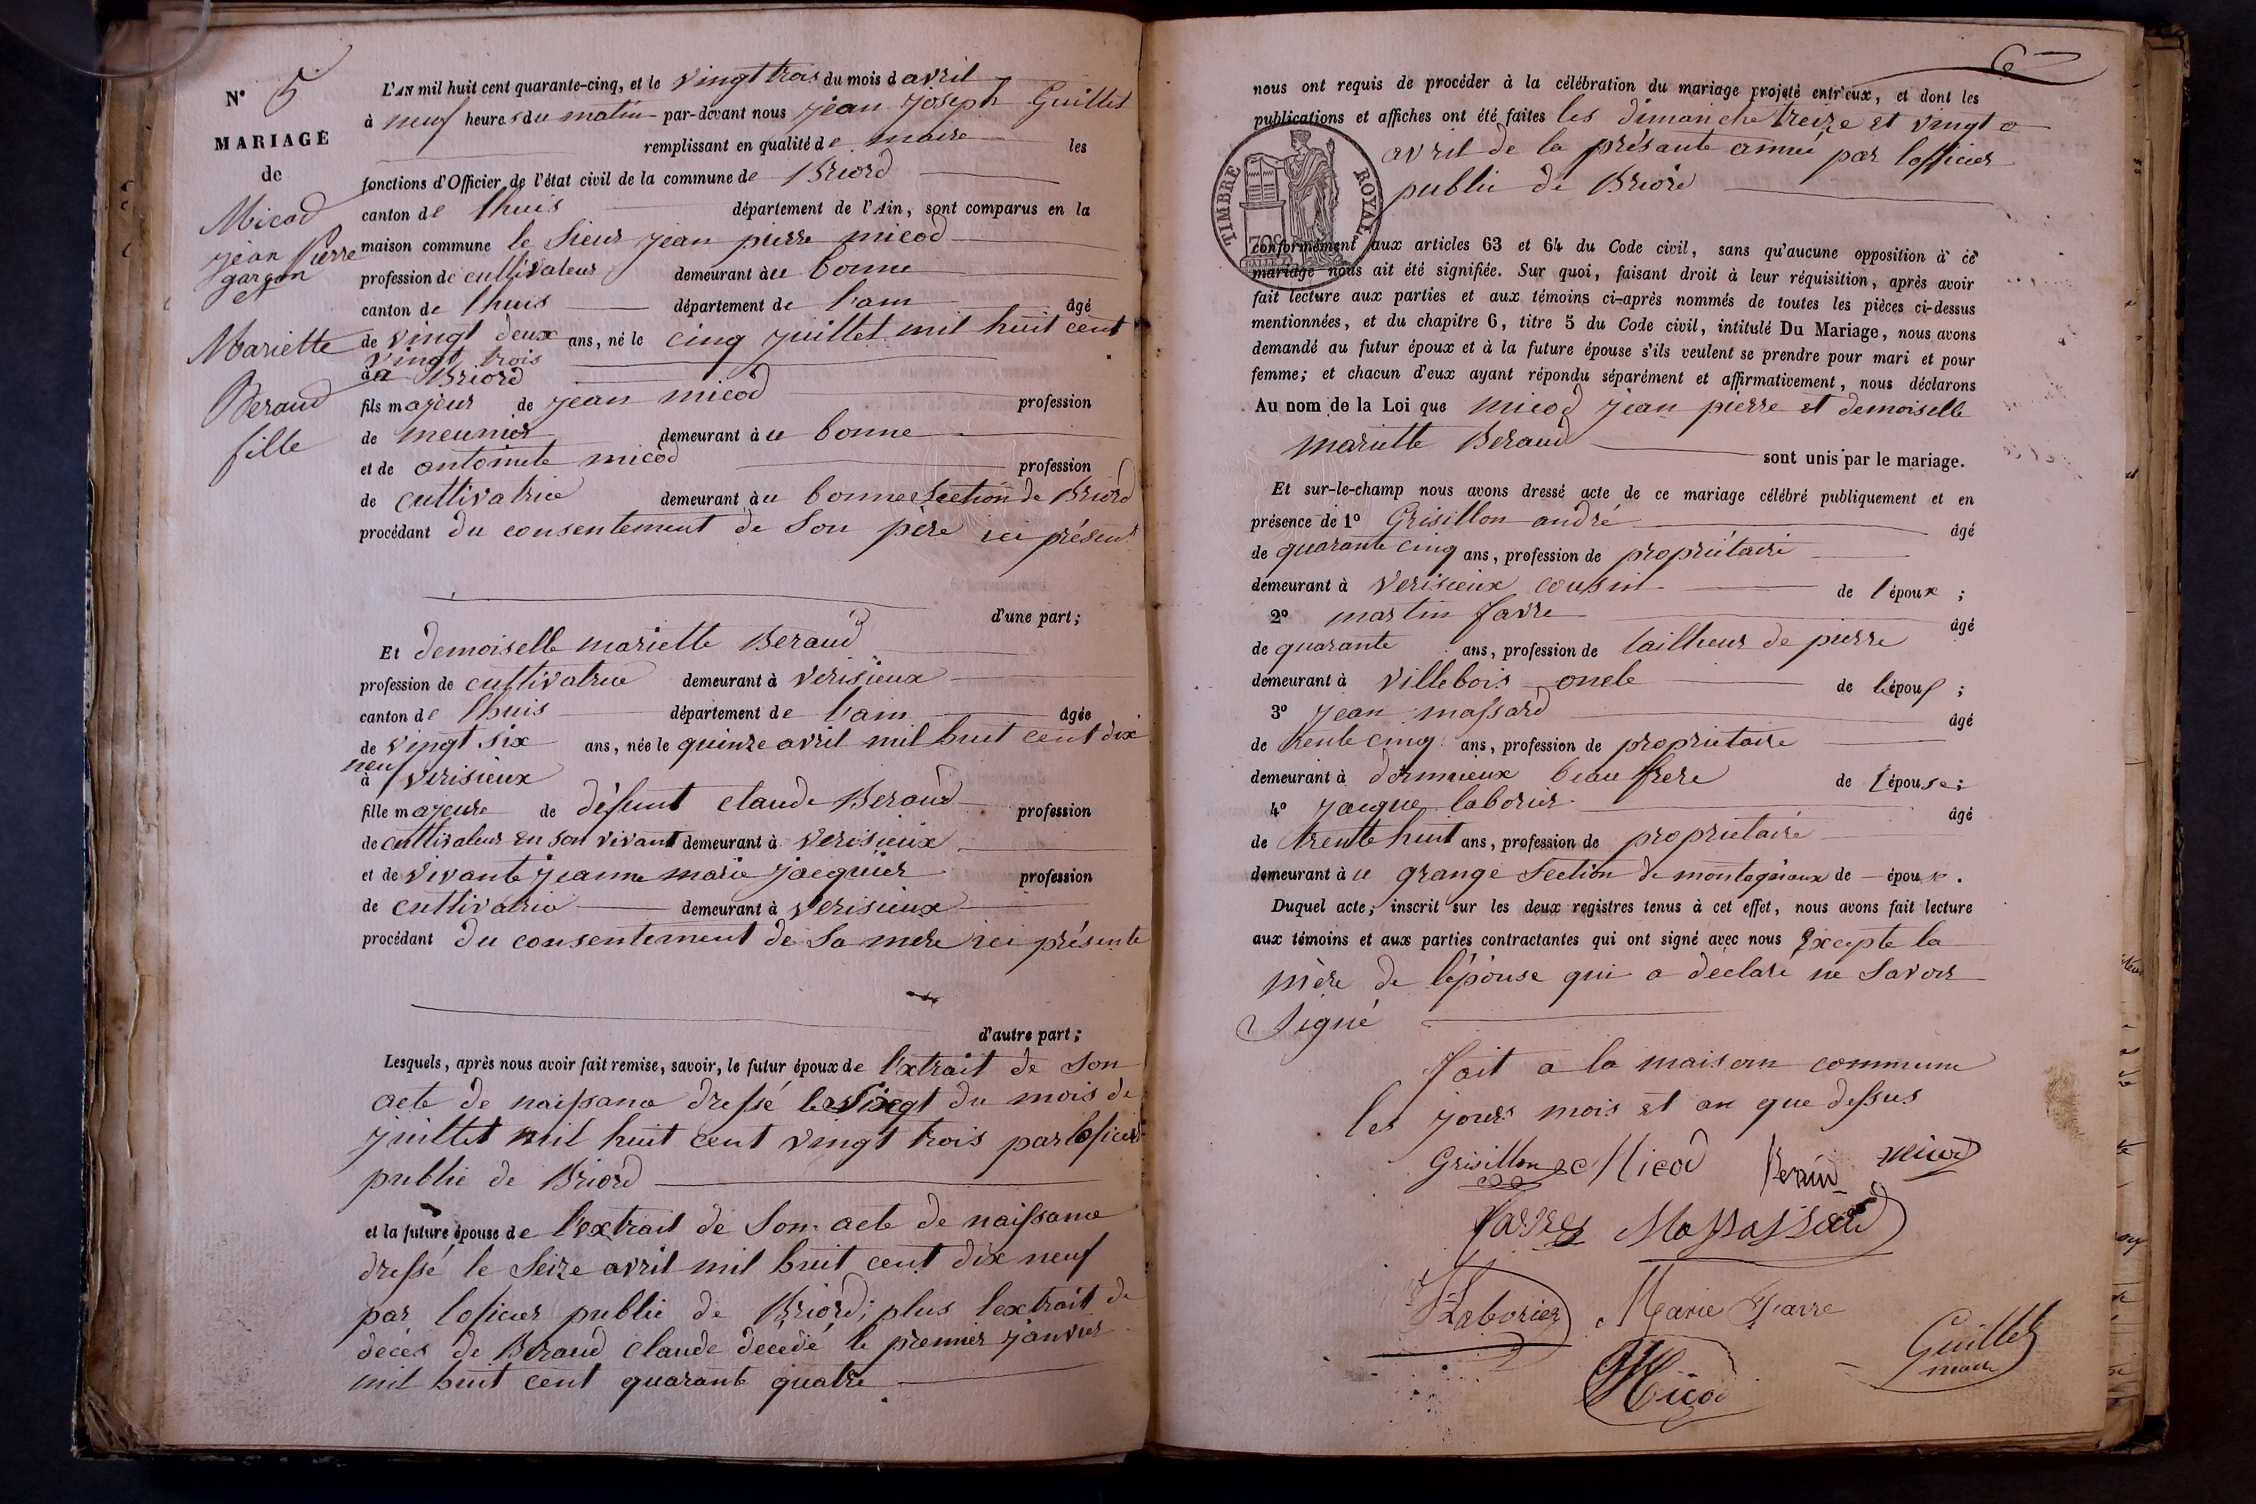 N° 5
MARIAGE
de
Micod
jean Pierre
garçon
et
Mariette
Beraud
fille
L'AN mil huit cent quarante-cinq, et le vingt trois du mois d avril
à neuf heures du matin par-devant nous jean joseph Guillet
remplissant en qualité de maire les
fonctions d'Officier de l'état civil de la commune de Briord
canton de lhuis département de l'Ain, sont comparus en la
maison commune le sieur jean pierre micod
profession de cultivateur demeurant à la bonne
canton de lhuis département de l'ain âgé
de vingt deux ans, né le cinq juillet mil huit cent
vingt trois
à Briord
fils majeur de jean micod profession
de meunier demeurant à la bonne
et de antoinete micod profession
de cultivatrice demeurant à la bonne section de Briord
procédant du consentement de son père ici présent
d'une part;
Et demoiselle mariette Beraud
profession de cultivatrice demeurant à verisieux
canton de lhuis département de l'ain âgée
de vingt six ans, née le quinze avril mil huit cent dix
neuf
à verisieux
fille majeure de défunt claude Beraud profession
de cultivateur en son vivant demeurant à verisieux
et de vivante jeanne marie jacquier profession
de cultivatrice demeurant à verisieux
procédant du consentement de sa mere ici présente
d'autre part;
Lesquels, après nous avoir fait remise, savoir, le futur époux de l'extrait de son
acte de naissance dressé le du mois de
juillet mil huit cent vingt trois par loficier
public de Briord
et la future épouse de l'extrait de son acte de naissance
dressé le seize avril mil huit cent dix neuf
par loficier public de Briord; plus lextrait de
décès de Beraud claude décédé le premier janvier
mil huit cent quarante quatre
6
nous ont requis de procéder à la célébration du mariage projeté entr'eux, et dont les
publications et affiches ont été faites les dimanche treize et vingt
avril de la présante année par lofficier
public de Briord
TIMBRE ROYAL
conformément aux articles 63 et 64 du Code civil, sans qu'aucune opposition à ce
mariage nous ait été signifiée. Sur quoi, faisant droit à leur réquisition, après avoir
fait lecture aux parties et aux témoins ci-après nommés de toutes les pièces ci-dessus
mentionnées, et du chapitre 6, titre 5 du Code civil, intitulé Du Mariage, nous avons
demandé au futur époux et à la future épouse s'ils veulent se prendre pour mari et pour
femme; et chacun d'eux ayant répondu séparément et affirmativement, nous déclarons
Au nom de la Loi que micod jean pierre et demoiselle
mariette Beraud
sont unis par le mariage.
Et sur-le-champ nous avons dressé acte de ce mariage célébré publiquement et en
présence de 1° Grisillon andré âgé
de quarante cinq ans, profession de propriétaire
demeurant à verisieux cousin de l'époux ;
2° martin favre âgé
de quarante ans, profession de tailleur de pierre
demeurant à villebois oncle de l'épou ;
3° jean massard âgé
de trente cinq ans, profession de proprietaire
demeurant à beau frere de l'épouse;
4° jacque laborier âgé
de trente huit ans, profession de proprietaire
demeurant à la grange section de montagnieux de épou .
Duquel acte, inscrit sur les deux registres tenus à cet effet, nous avons fait lecture
aux témoins et aux parties contractantes qui ont signé avec nous Excepte la
mère de l'épouse qui a déclaré ne savoir
signé
fait a la maison commune
les jours mois et an que dessus
Grisillon Micod Beraud micod
favre Massard
Laborier Marie Favre
Micod
Guillet
maire